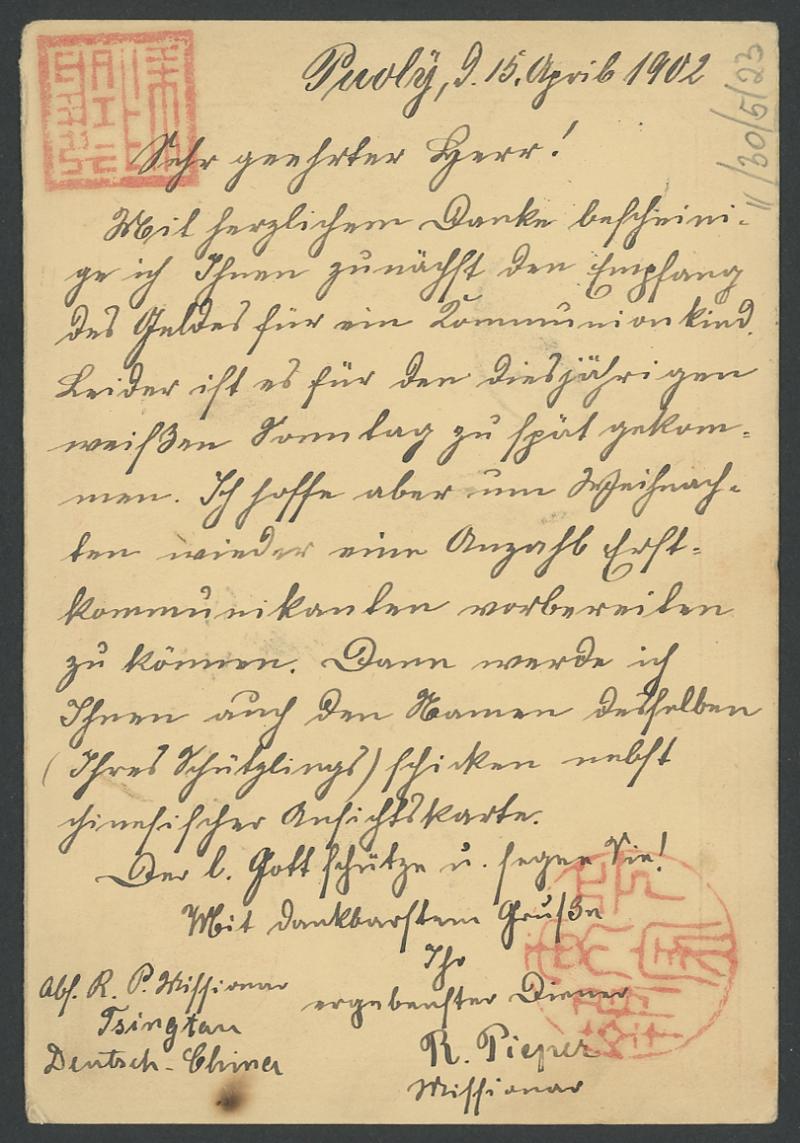 Puoly, d. 15. April 1902
Sehr geehrter Herr!
Mit herzlichem Danke bescheini-
ge ich Ihnen zunächst den Empfang
des Geldes für ein Kommunionkind.
Leider ist es für den diesjährigen
weißen Sonntag zu spät gekom-
men. Ich hoffe aber um Weihnach-
ten wieder eine Anzahl Erst-
kommunikanten vorbereiten
zu können. Dann werde ich
Ihnen auch den Namen desselben
(Ihres Schützlings) schicken nebst
chinesischer Ansichtskarte.
Der l. Gott schütze u. segne Sie!
Mit dankbarstem Gruße
Ihr
ergebenster Diener
R. Pieper
Missionar
Abs. R. P. Missionar
Tsingtau
Deutsch-China
11/30/5/23